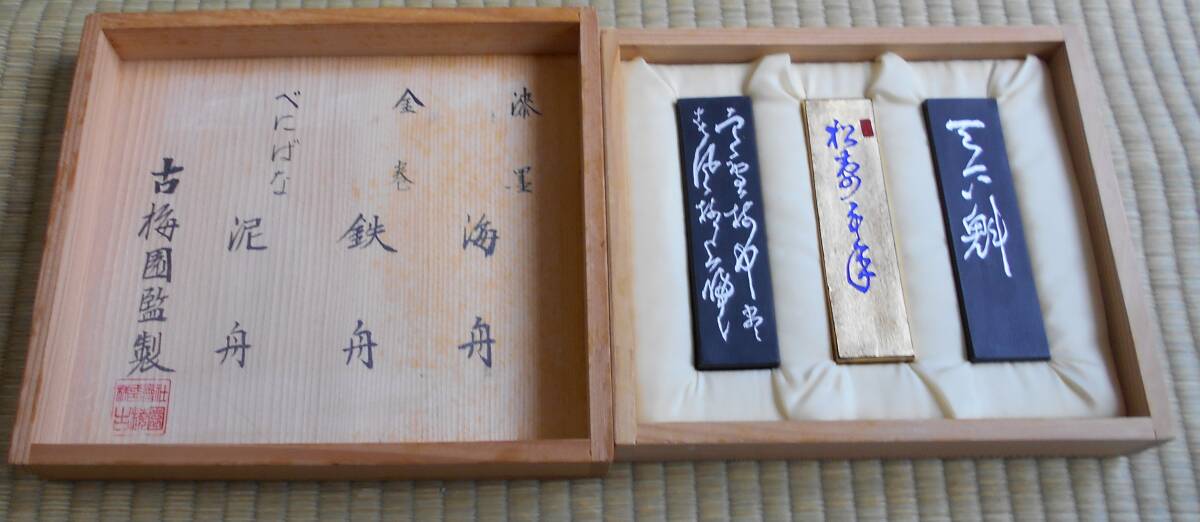 漆墨
海舟
金巻
鉄舟
べにばな
泥舟
古梅園監製
天下魁
松壽千年